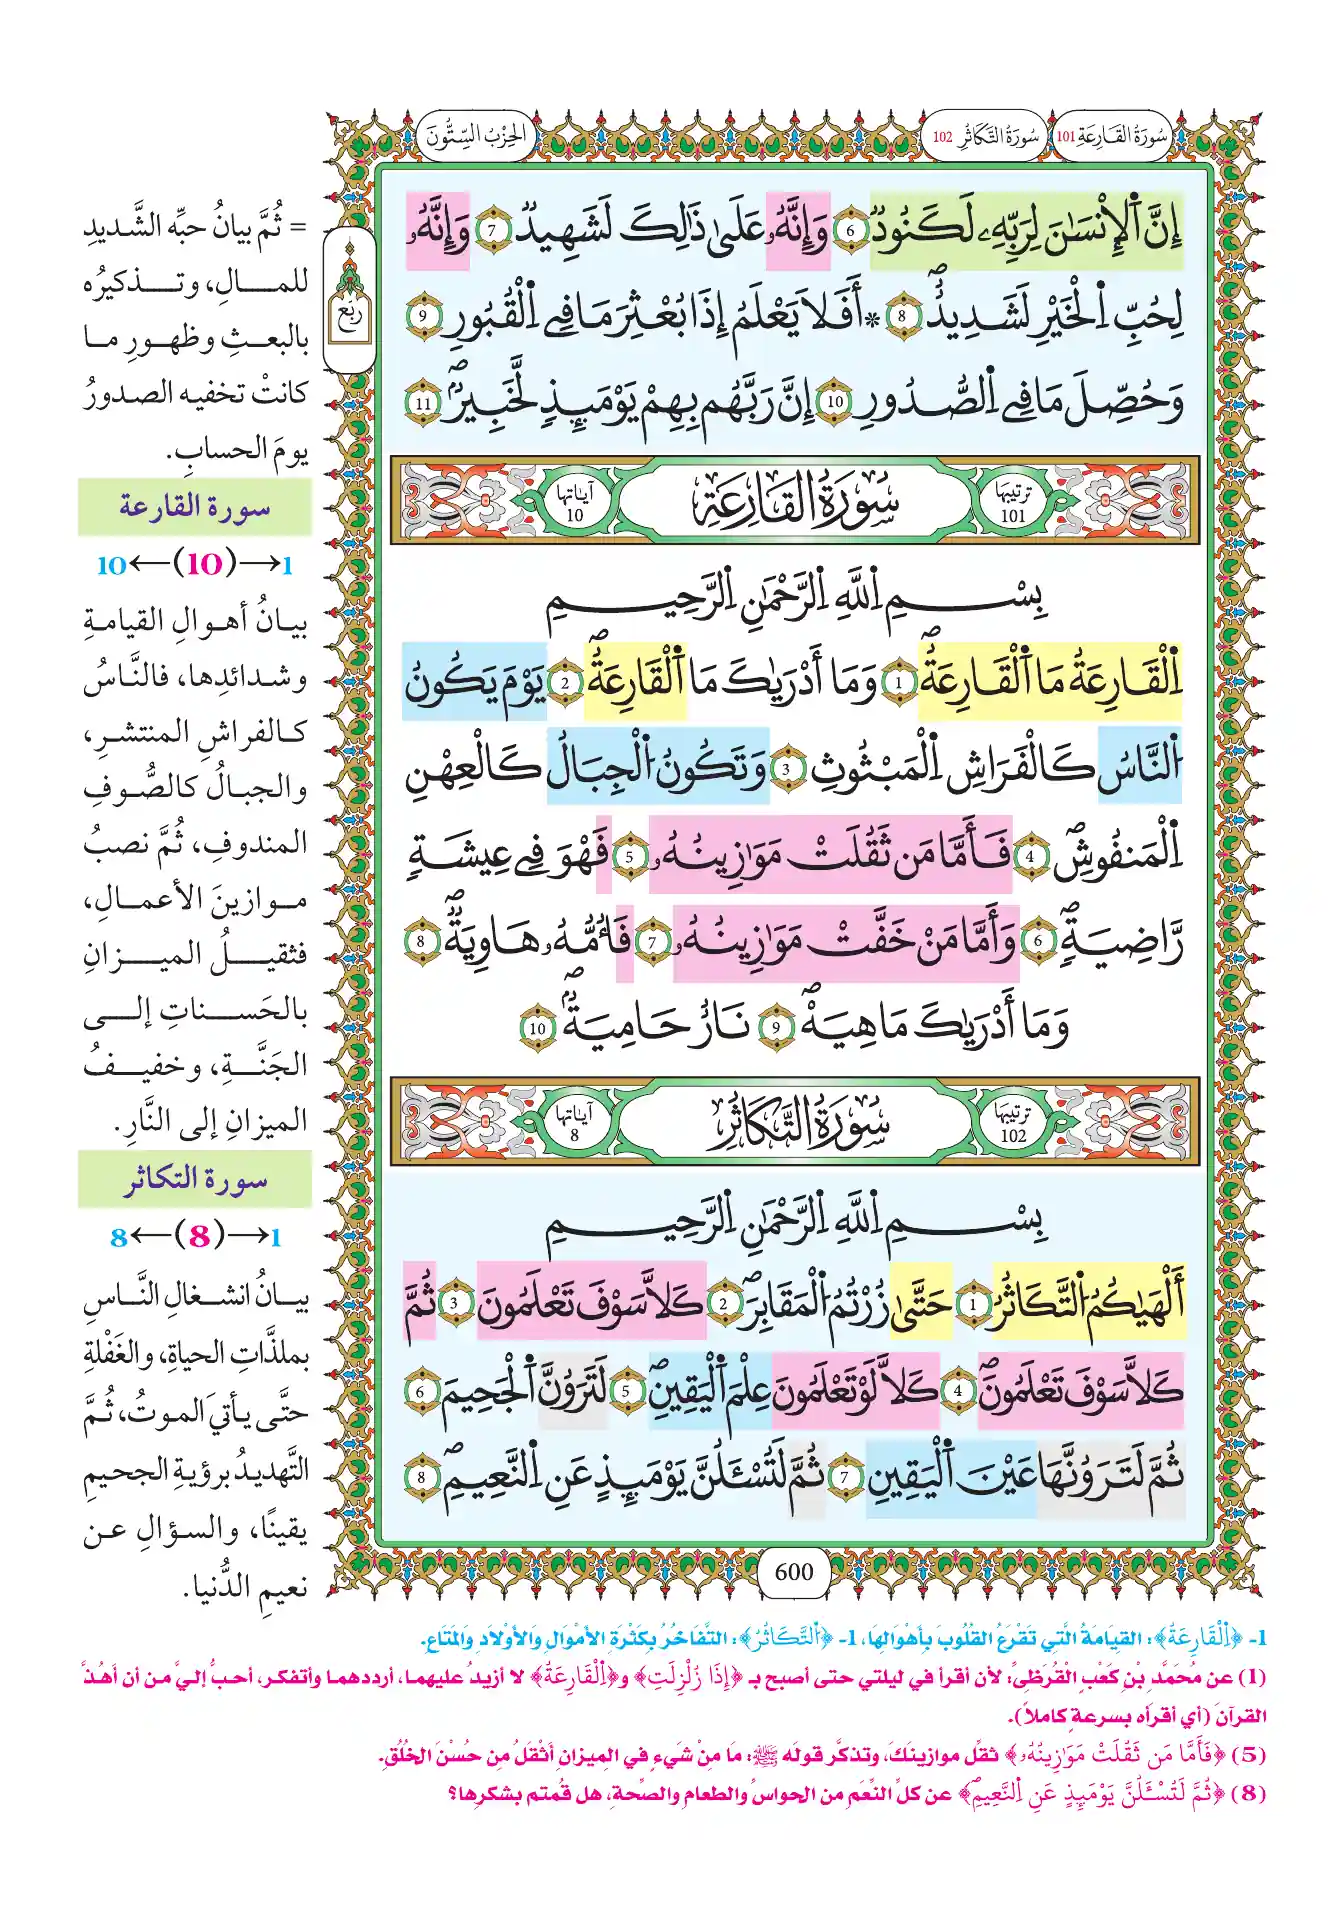 سُورَةُ القَارِعَةِ 101 سُورَةُ التَّكَاثُرِ 102 الحِزْبُ السِّتُّونَ
إِنَّ اَ۬لْإِنسَٰنَ لِرَبِّهِۦ لَكَنُودٞ 6 وَإِنَّهُۥ عَلَىٰ ذَٰلِكَ لَشَهِيدٞ 7 وَإِنَّهُۥ
لِحُبِّ اِ۬لْخَيْرِ لَشَدِيدٌۖ 8 * أَفَلَا يَعْلَمُ إِذَا بُعْثِرَ مَا فِے اِ۬لْقُبُورِ 9
وَحُصِّلَ مَا فِے اِ۬لصُّدُورِ 10 إِنَّ رَبَّهُم بِهِمْ يَوْمَئِذٖ لَّخَبِيرٌۖ 11
ترتيبها 101 سُورَةُ القَارِعَةِ آياتها 10
بِسْمِ اِ۬للَّهِ اِ۬لرَّحْمَٰنِ اِ۬لرَّحِيمِ
اِ۬لْقَارِعَةُ مَا اَ۬لْقَارِعَةُۖ 1 وَمَا أَدْرَىٰكَ مَا اَ۬لْقَارِعَةُۖ 2 يَوْمَ يَكُونُ
اُ۬لنَّاسُ كَالْفَرَاشِ اِ۬لْمَبْثُوثِ 3 وَتَكُونُ اُ۬لْجِبَالُ كَالْعِهْنِ
اِ۬لْمَنفُوشِۖ 4 فَأَمَّا مَن ثَقُلَتْ مَوَٰزِينُهُۥ 5 فَهْوَ فِے عِيشَةٖ
رَّاضِيَةٖۖ 6 وَأَمَّا مَنْ خَفَّتْ مَوَٰزِينُهُۥ 7 فَأُمُّهُۥ هَاوِيَةٞۖ 8
وَمَا أَدْرَىٰكَ مَا هِيَهْۖ 9 نَارٌ حَامِيَةٌۖ 10
ترتيبها 102 سُورَةُ التَّكَاثُرِ آياتها 8
بِسْمِ اِ۬للَّهِ اِ۬لرَّحْمَٰنِ اِ۬لرَّحِيمِ
أَلْهَىٰكُمُ اُ۬لتَّكَاثُرُ 1 حَتَّىٰ زُرْتُمُ اُ۬لْمَقَابِرَۖ 2 كَلَّا سَوْفَ تَعْلَمُونَ 3 ثُمَّ
كَلَّا سَوْفَ تَعْلَمُونَۖ 4 كَلَّا لَوْ تَعْلَمُونَ عِلْمَ اَ۬لْيَقِينِۖ 5 لَتَرَوُنَّ اَ۬لْجَحِيمَ 6
ثُمَّ لَتَرَوُنَّهَا عَيْنَ اَ۬لْيَقِينِ 7 ثُمَّ لَتُسْـَٔلُنَّ يَوْمَئِذٍ عَنِ اِ۬لنَّعِيمِۖ 8
600
رُبْع
= ثُمَّ بيانُ حبِّه الشَّديدِ
للمالِ، وتذكيرُه
بالبعثِ وظهورِ ما
كانتْ تخفيه الصدورُ
يومَ الحسابِ.
سورة القارعة
1→(10)←10
بيانُ أهوالِ القيامةِ
وشدائدِها، فالنَّاسُ
كالفراشِ المنتشرِ،
والجبالُ كالصُّوفِ
المندوفِ، ثُمَّ نصبُ
موازينَ الأعمالِ،
فثقيلُ الميزانِ
بالحَسناتِ إلى
الجَنَّةِ، وخفيفُ
الميزانِ إلى النَّارِ.
سورة التكاثر
1→(8)←8
بيانُ انشغالِ النَّاسِ
بملذَّاتِ الحياةِ، والغَفْلةِ
حتَّى يأتيَ الموتُ، ثُمَّ
التَّهديدُ برؤيةِ الجحيمِ
يقينًا، والسؤالِ عن
نعيمِ الدُّنيا.
1- ﴿اِ۬لْقَارِعَةُ﴾: القيامةُ الَّتِي تَقْرَعُ القُلُوبَ بِأهْوَالِهَا، 1- ﴿اُ۬لتَّكَاثُرُ﴾: التَّفَاخُرُ بِكَثْرَةِ الأمْوَالِ وَالأوْلَادِ وَالمَتَاعِ.
(1) عن مُحَمَّدِ بْنِ كَعْبٍ الْقُرَظِيِّ: لأن أقرأ في ليلتي حتى أصبح بـ ﴿إِذَا زُلْزِلَتِ﴾ و﴿اِ۬لْقَارِعَةُ﴾ لا أزيدُ عليهما، أرددهما وأتفكر، أحبُّ إليَّ من أن أهُذَّ
القرآنَ (أي أقرأه بسرعةٍ كاملاً).
(5) ﴿فَأَمَّا مَن ثَقُلَتْ مَوَٰزِينُهُۥ﴾ ثقِّل موازينَكَ، وتذكَّر قولَه ﷺ: مَا مِنْ شَيْءٍ فِي المِيزانِ أثْقَلُ مِن حُسْنَ الخُلُقِ.
(8) ﴿ثُمَّ لَتُسْـَٔلُنَّ يَوْمَئِذٍ عَنِ اِ۬لنَّعِيمِۖ﴾ عن كلِّ النِّعَم من الحواسِّ والطعامِ والصِّحةِ، هل قُمتم بشكرِها؟